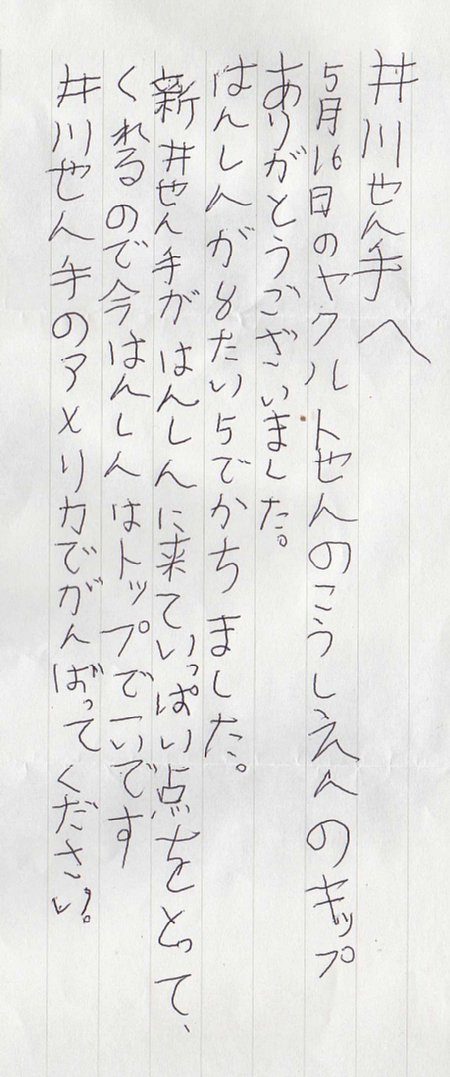 井川せん手へ
5月16日のヤクルトせんのこうしえんのキップ
ありがとうございました。
はんしんが8たい5でかちました。
新井せん手がはんしんに来ていっぱい点をとって、
くれるので今はんしんはトップで一いです
井川せん手のアメリカでがんばってください。